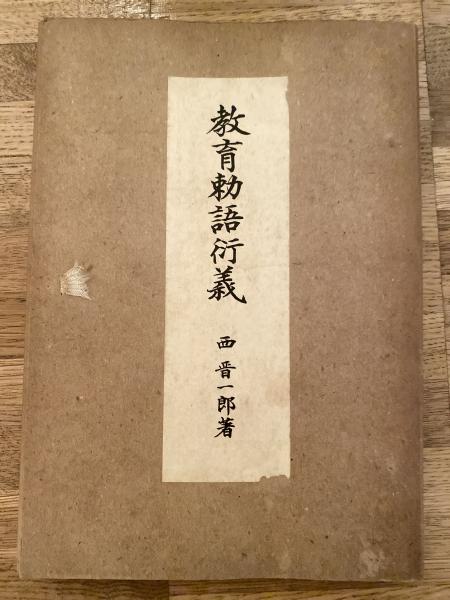 教育勅語衍義
西晋一郎著